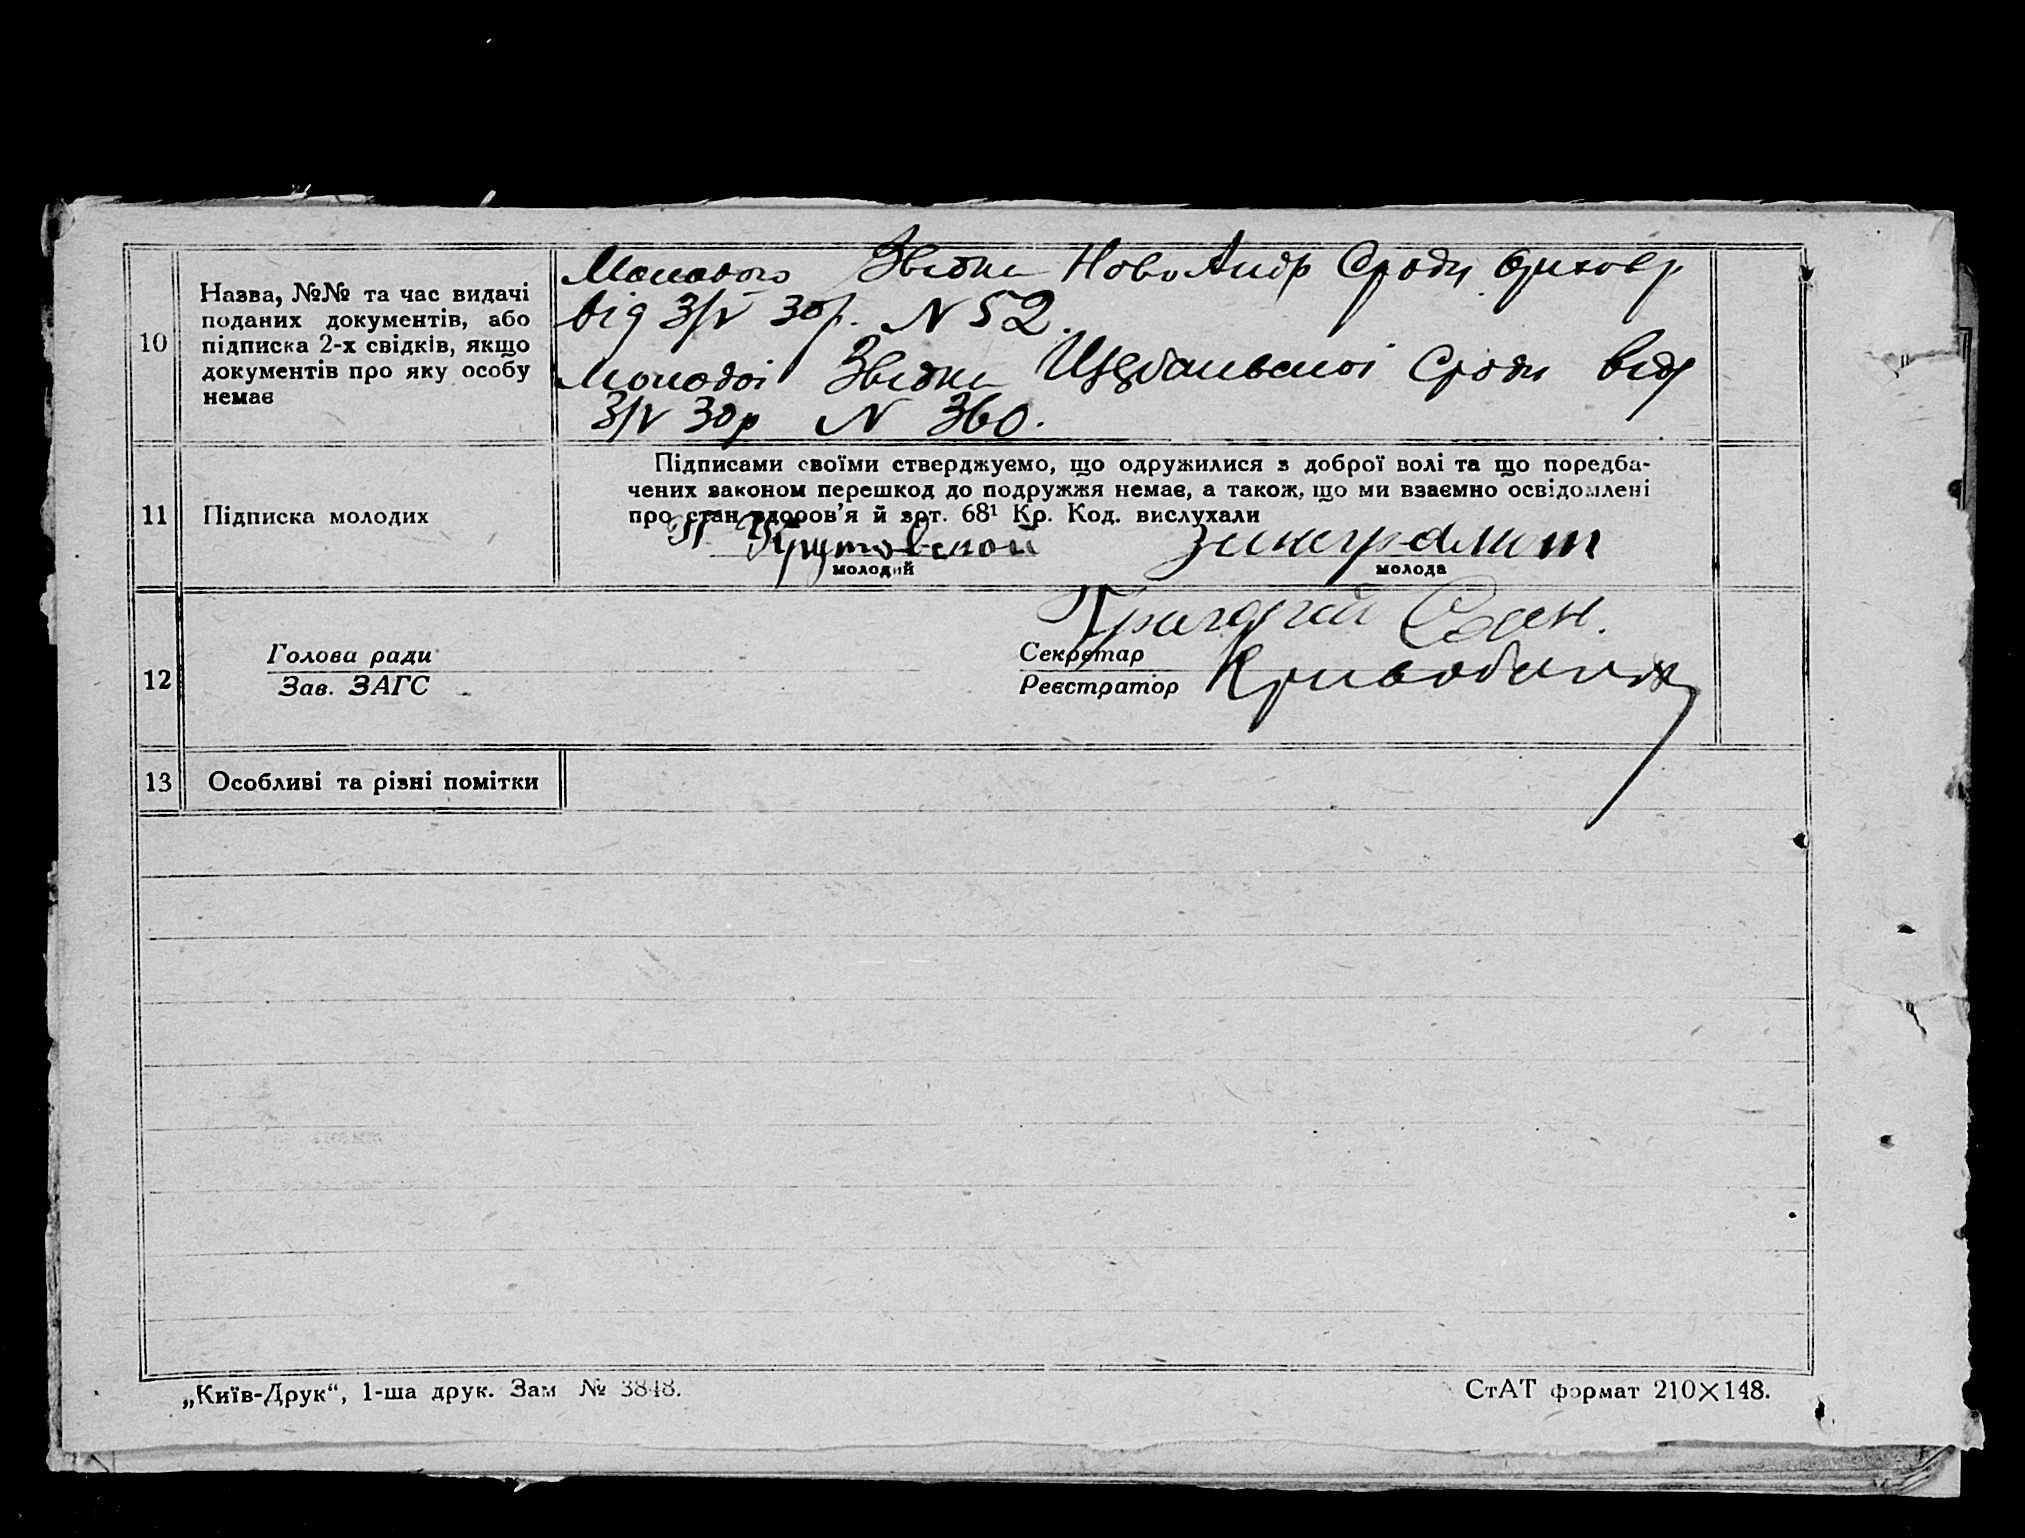 10
Назва, №№ та час видачі
поданих документів, або
підписка 2-х свідків, якщо
документів про яку особу
немає
Молодого Звідка Ново Андр Сради
від 3/V 30р. N 52.
Молодої Звідка Щербанівської Сради від
3/V 30р N 360.
11
Підписка молодих
Підписами своїми стверджуємо, що одружилися з доброї волі та що поредба-
чених законом перешкод до подружжя немає, а також, що ми взаємно освідомлені
про стан здоров'я й арт. 68¹ Кр. Код. вислухали
Крутовской
молодий
молода
12
Голова ради
Зав. ЗАГС
Григорій
Секретар
Реєстратор
13
Особливі та різні помітки
„Київ-Друк“, 1-ша друк. Зам № 3848.
СтАТ формат 210×148.